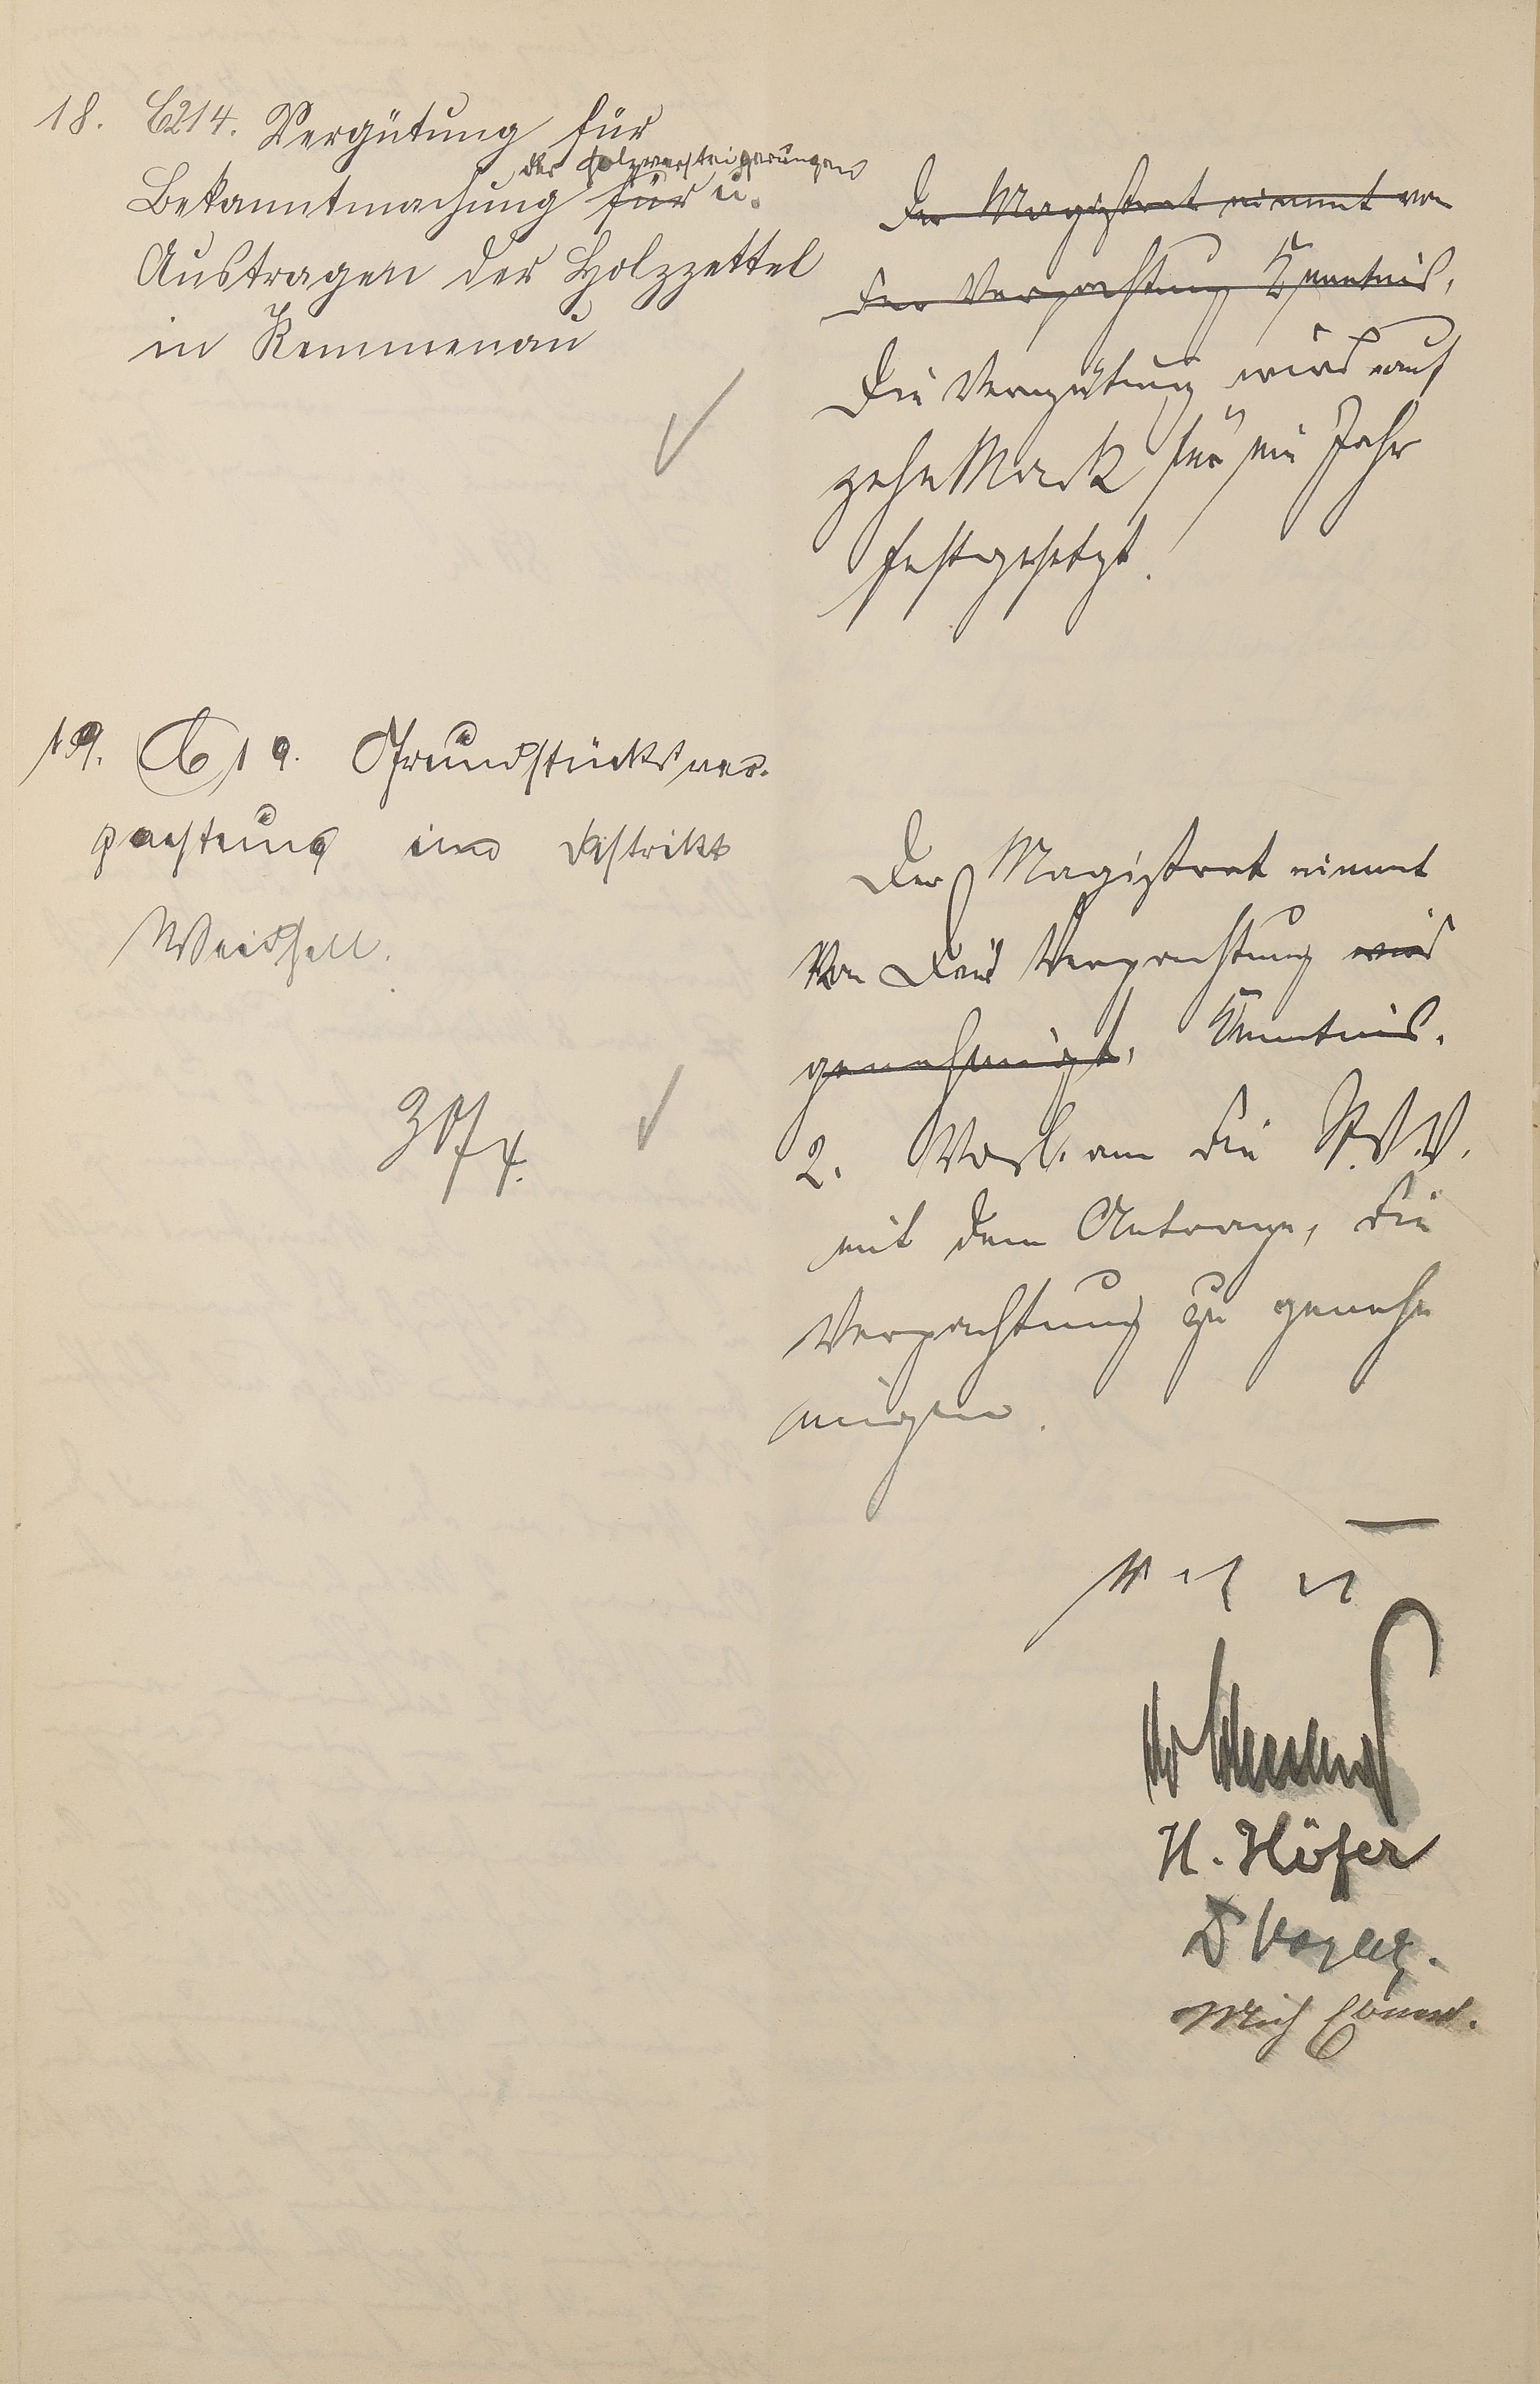 18. C214. Vergütung für
der Holzversteigerungen
Bekanntmachung für u.
Austragen der Holzzettel
in Kemmenau
Der Magistrat nimmt von
der Verpachtung Kenntnis.
Die Vergütung wird auf
zehn Mark für ein Jahr
festgesetzt.
19. C 19. Grundstücksver-
pachtung im Distrikt
Weidhell.
Der Magistrat nimmt
Von der Verpachtung wird
genehmigt. Kenntnis.
2. Vorl. an die St.V.V.
mit dem Antrage, die
Verpachtung zu geneh
migen.
v. g. u.
H. Höfer